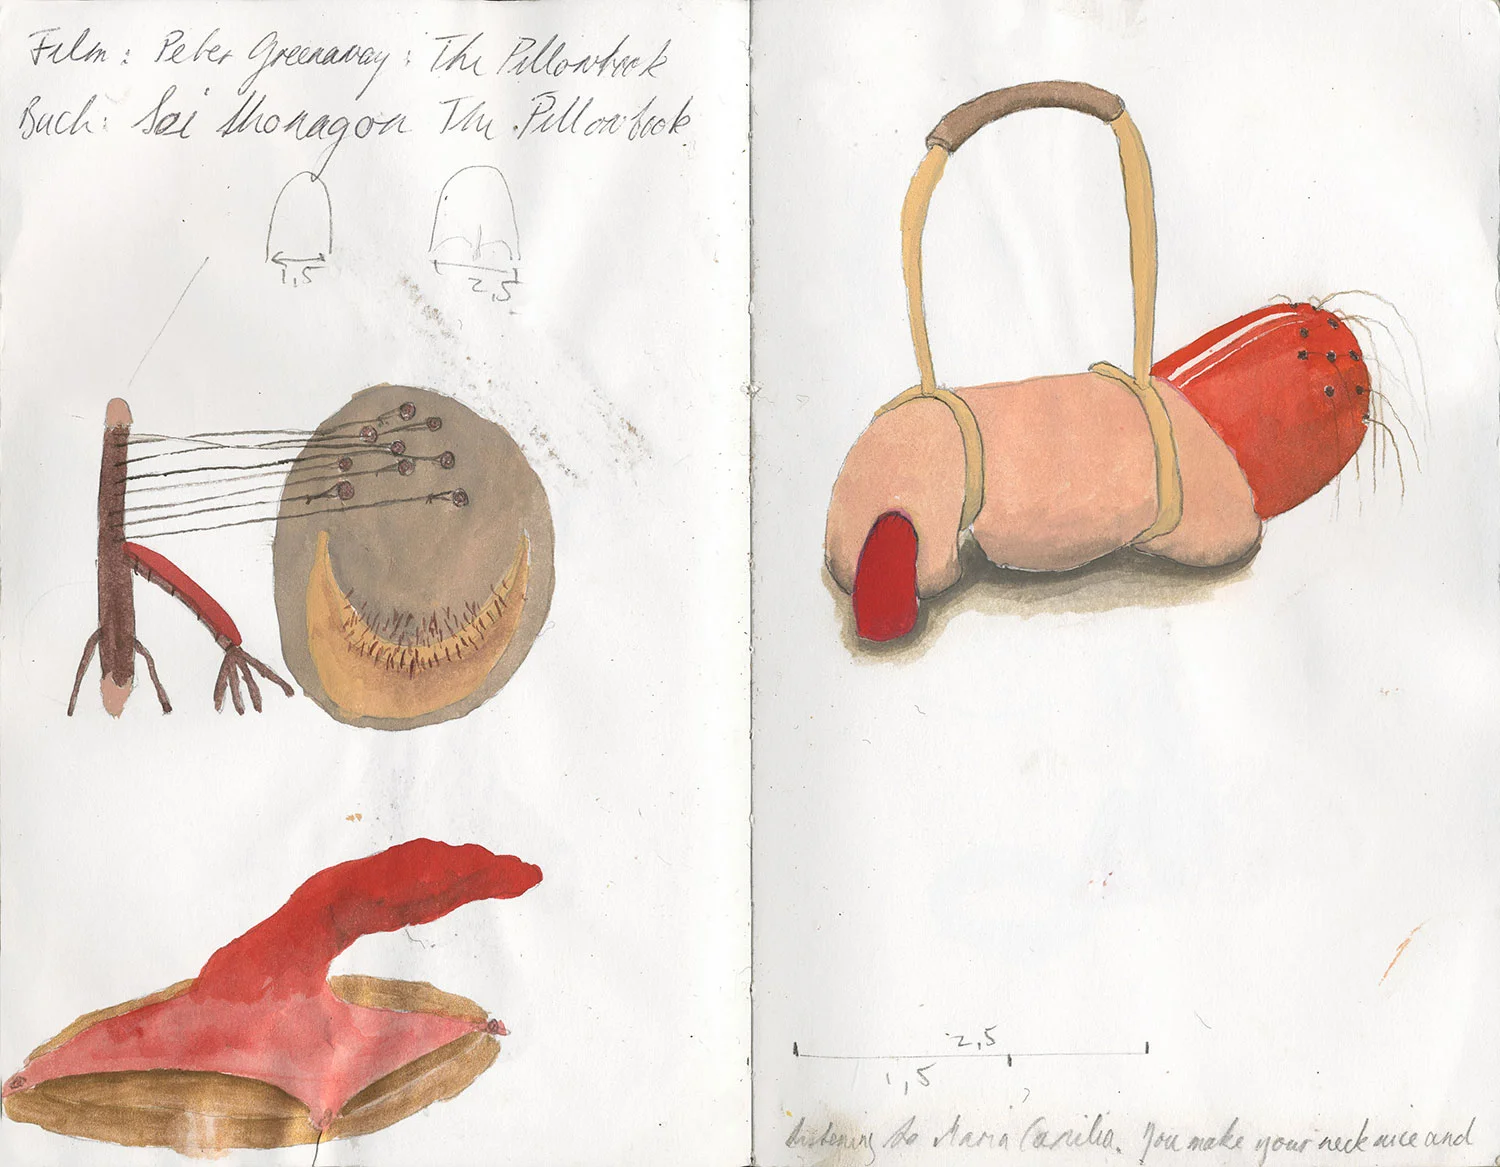 Film: Peter Greenaway: The Pillowbook
Buch: Sei Shonagon The Pillowbook
1,5
2,5
2,5
1,5
listening to Maria Cecilia. You make your neck nice and